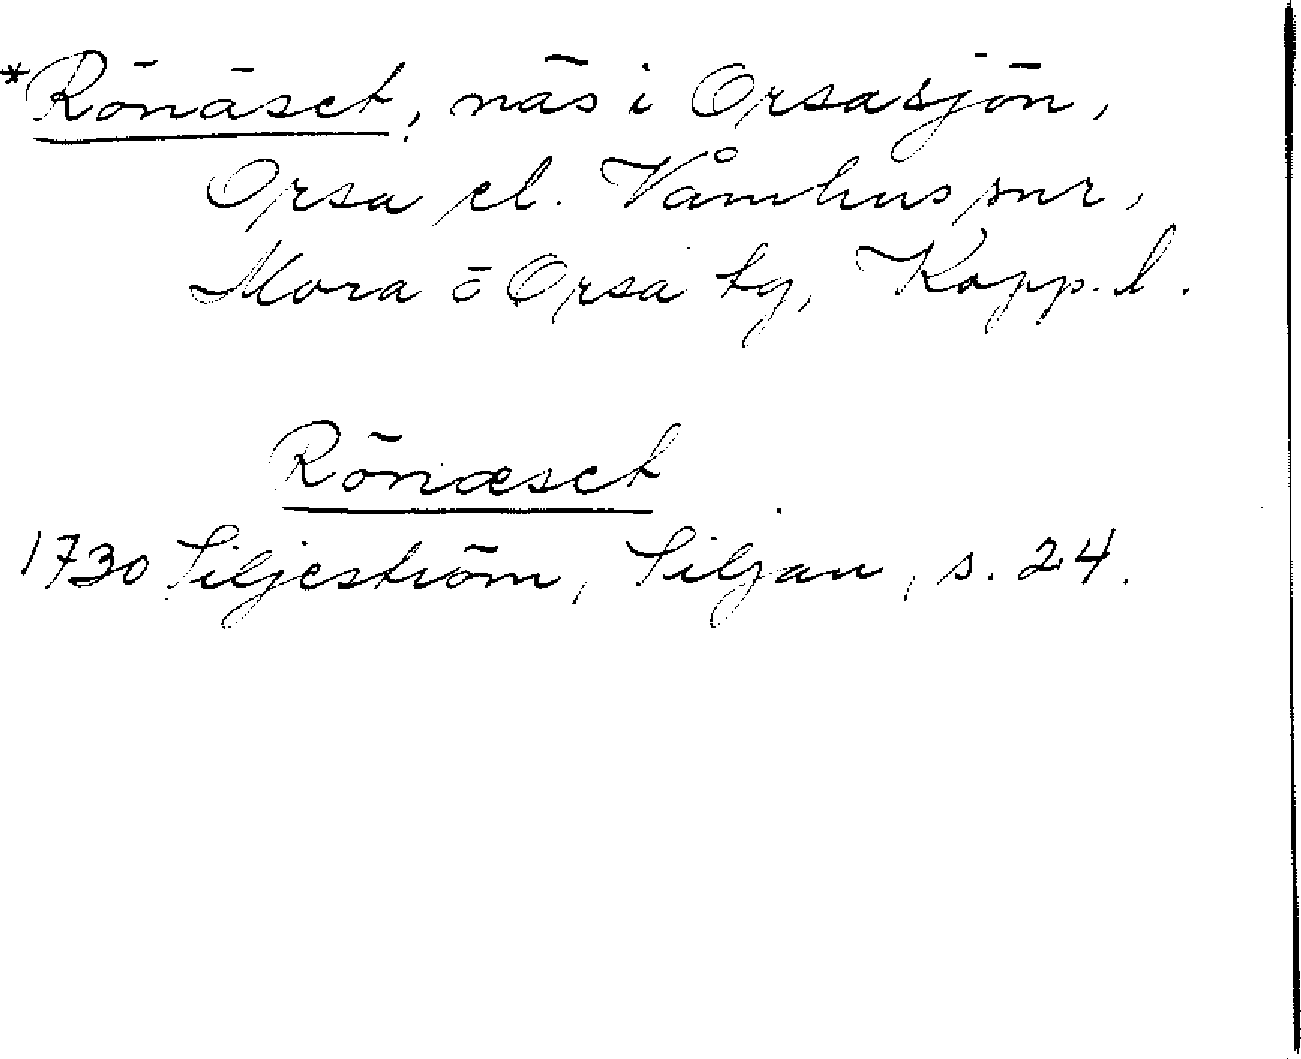 *Rönäset, näs i Orsasjön,
Orsa el. Våmhus snr,
Mora o Orsa tg, Kopp. l.
Rönæset
1730 Siljeström, Siljan, s. 24.